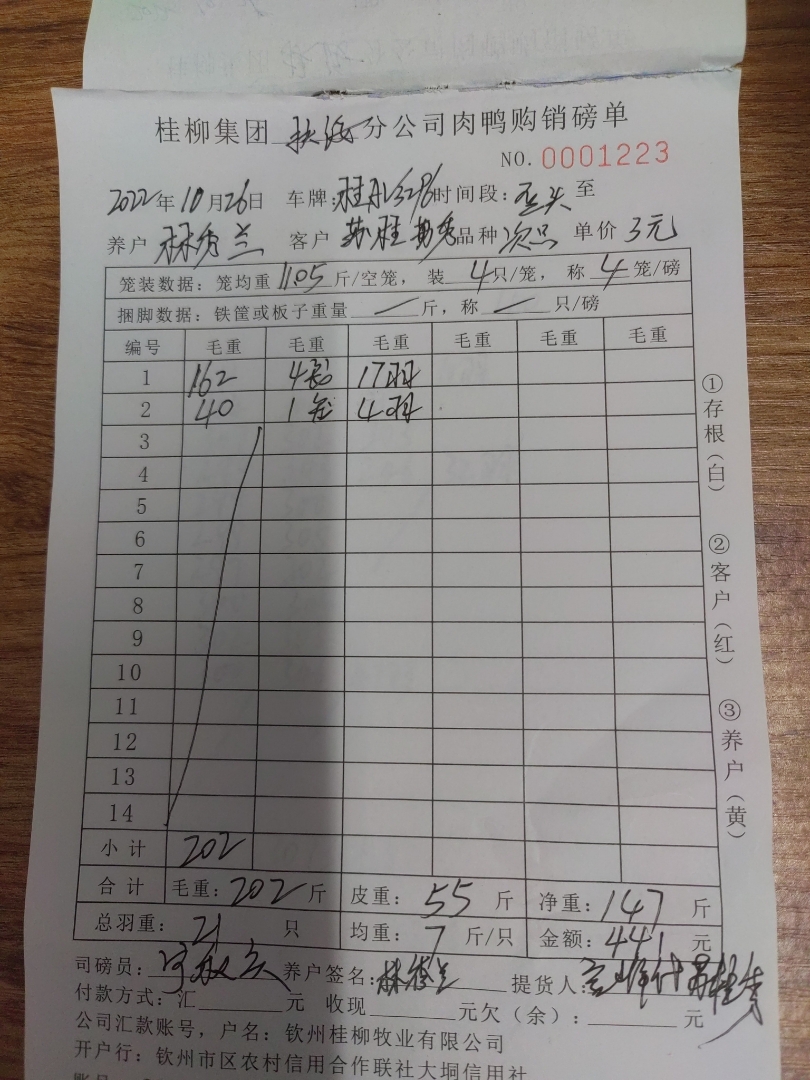 桂柳集团 分公司肉鸭购销磅单
NO. 0001223
2022年10月26日 车牌: 时间段: 至
养户 林秀兰 客户 苏桂 品种 次品 单价 3元
笼装数据: 笼均重 11.05 斤/空笼, 装 4只/笼, 称 4笼/磅
捆脚数据: 铁筐或板子重量 / 斤, 称 / 只/磅
编号 毛重 毛重 毛重 毛重 毛重 毛重
1 162 4 17羽
2 40 1 4羽
3
4
5
6
7
8
9
10
11
12
13
14
小计 202
合计 毛重: 202斤 皮重: 55 斤 净重: 147 斤
总羽重: 21 只 均重: 7 斤/只 金额: 441 元
司磅员: 养户签名: 林秀兰 提货人:
付款方式: 汇 元 收现 元欠(余): 元
公司汇款账号, 户名: 钦州桂柳牧业有限公司
开户行: 钦州市区农村信用合作联社大垌信用社
①存根(白) ②客户(红) ③养户(黄)